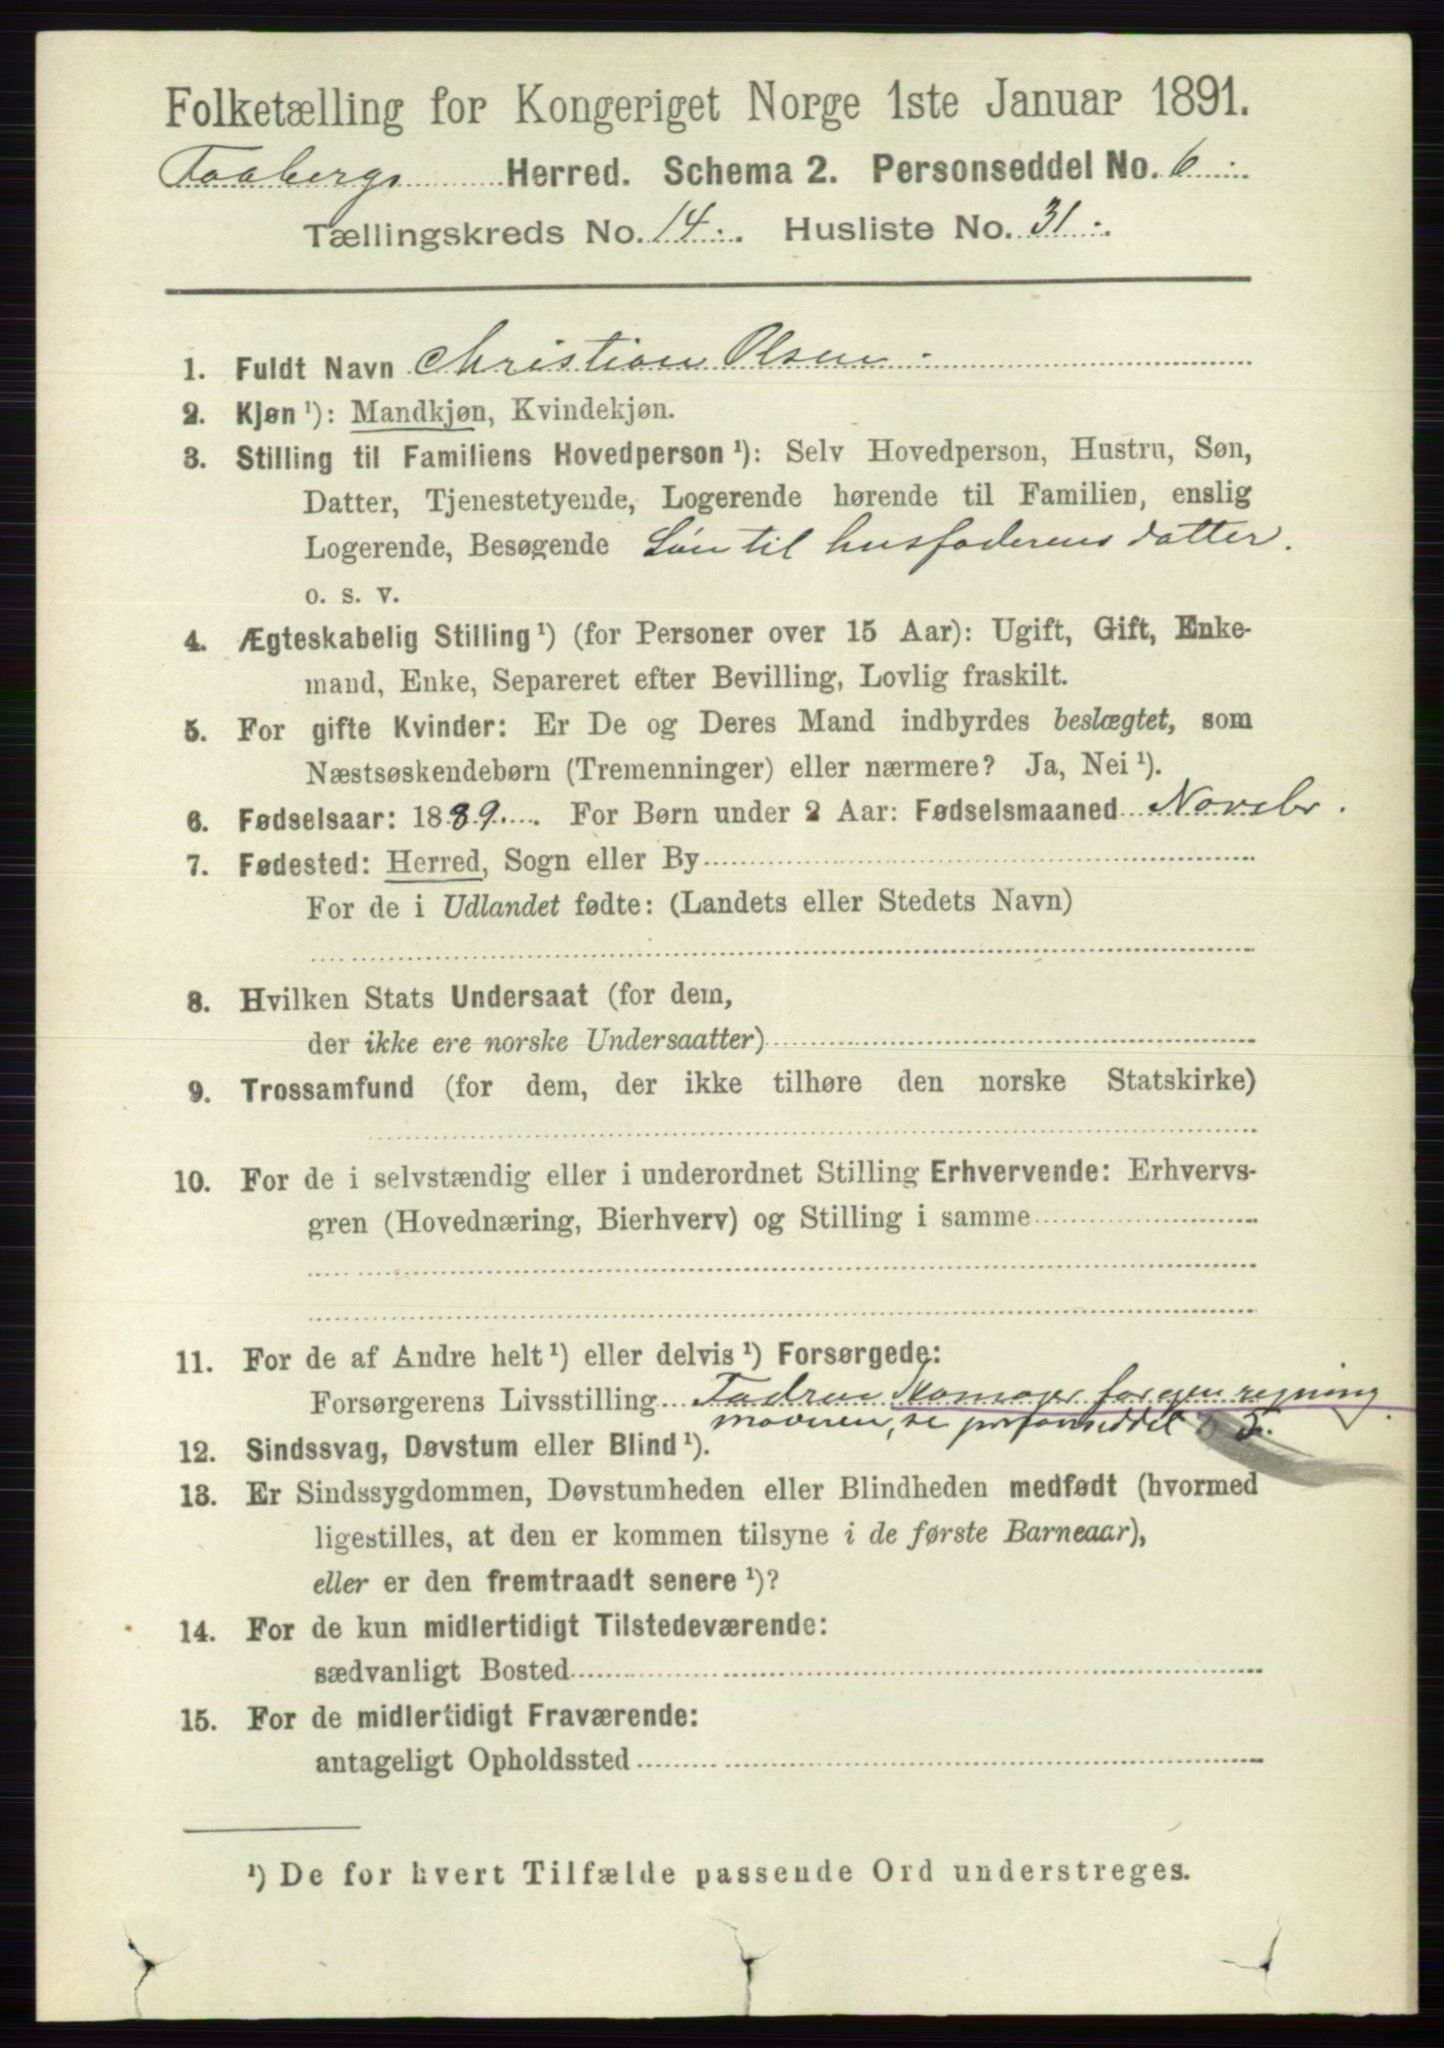 Folketælling for Kongeriget Norge 1ste Januar 1891.
Faabergs Herred. Schema 2. Personseddel No. 6
Tællingskreds No. 14. Husliste No. 31.
1. Fuldt Navn Christian Olsen
2. Kjøn ¹): Mandkjøn, Kvindekjøn.
3. Stilling til Familiens Hovedperson ¹): Selv Hovedperson, Hustru, Søn,
Datter, Tjenestetyende, Logerende hørende til Familien, enslig
Logerende, Besøgende Søn til husfaderens datter.
o. s. v.
4. Ægteskabelig Stilling ¹) (for Personer over 15 Aar): Ugift, Gift, Enke-
mand, Enke, Separeret efter Bevilling, Lovlig fraskilt.
5. For gifte Kvinder: Er De og Deres Mand indbyrdes beslægtet, som
Næstsøskendebørn (Tremenninger) eller nærmere? Ja, Nei ¹).
6. Fødselsaar: 1889. For Børn under 2 Aar: Fødselsmaaned Novebr.
7. Fødested: Herred, Sogn eller By
For de i Udlandet fødte: (Landets eller Stedets Navn)
8. Hvilken Stats Undersaat (for dem,
der ikke ere norske Undersaatter)
9. Trossamfund (for dem, der ikke tilhøre den norske Statskirke)
10. For de i selvstændig eller i underordnet Stilling Erhvervende: Erhvervs-
gren (Hovednæring, Bierhverv) og Stilling i samme
11. For de af Andre helt ¹) eller delvis ¹) Forsørgede:
Forsørgerens Livsstilling Fadren Skomager for egen regning
moderen, se personseddel 5.
12. Sindssvag, Døvstum eller Blind ¹).
13. Er Sindssygdommen, Døvstumheden eller Blindheden medfødt (hvormed
ligestilles, at den er kommen tilsyne i de første Barneaar),
eller er den fremtraadt senere ¹)?
14. For de kun midlertidigt Tilstedeværende:
sædvanligt Bosted
15. For de midlertidigt Fraværende:
antageligt Opholdssted
¹) De for hvert Tilfælde passende Ord understreges.